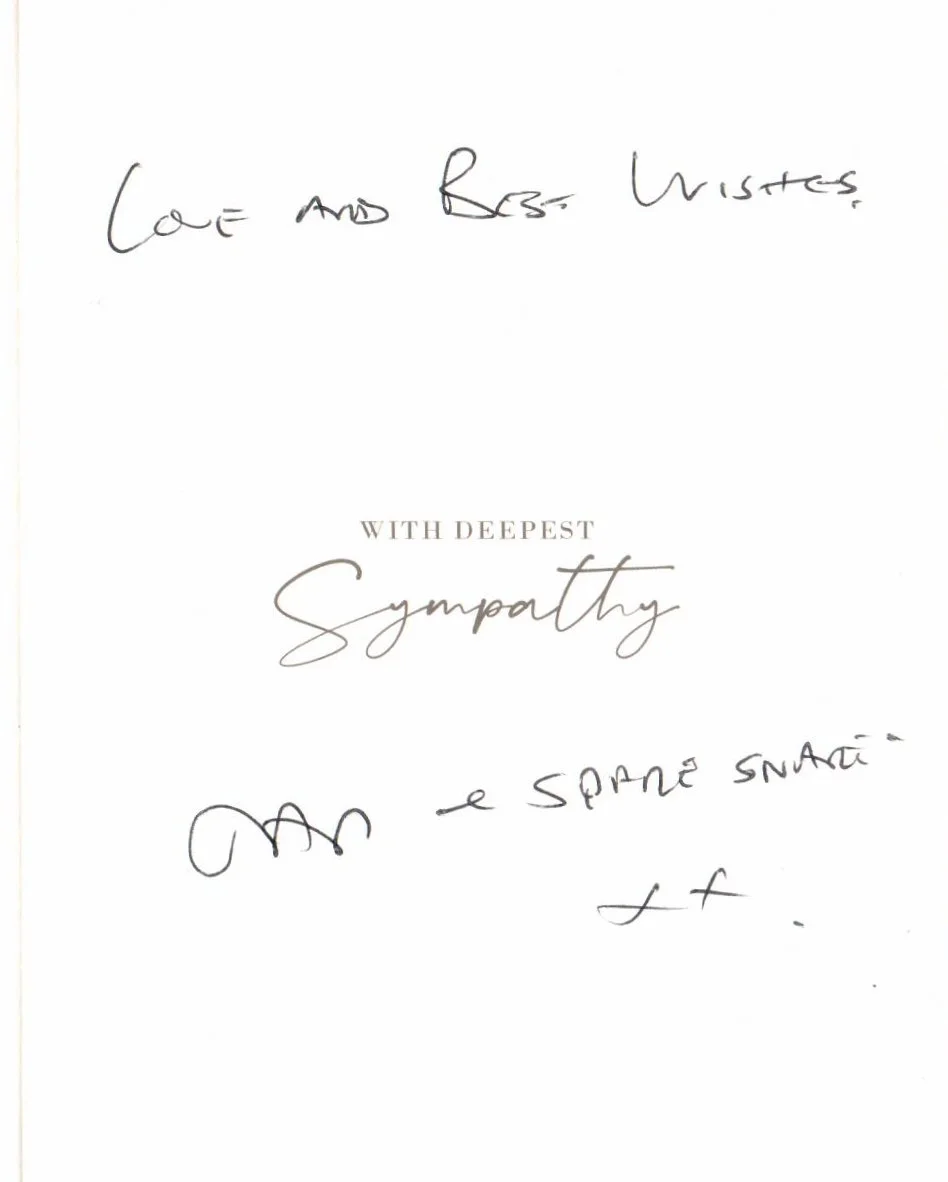 LOVE AND BEST WISHES.
WITH DEEPEST
Sympathy
JAN & SPARE SNARE
xx.